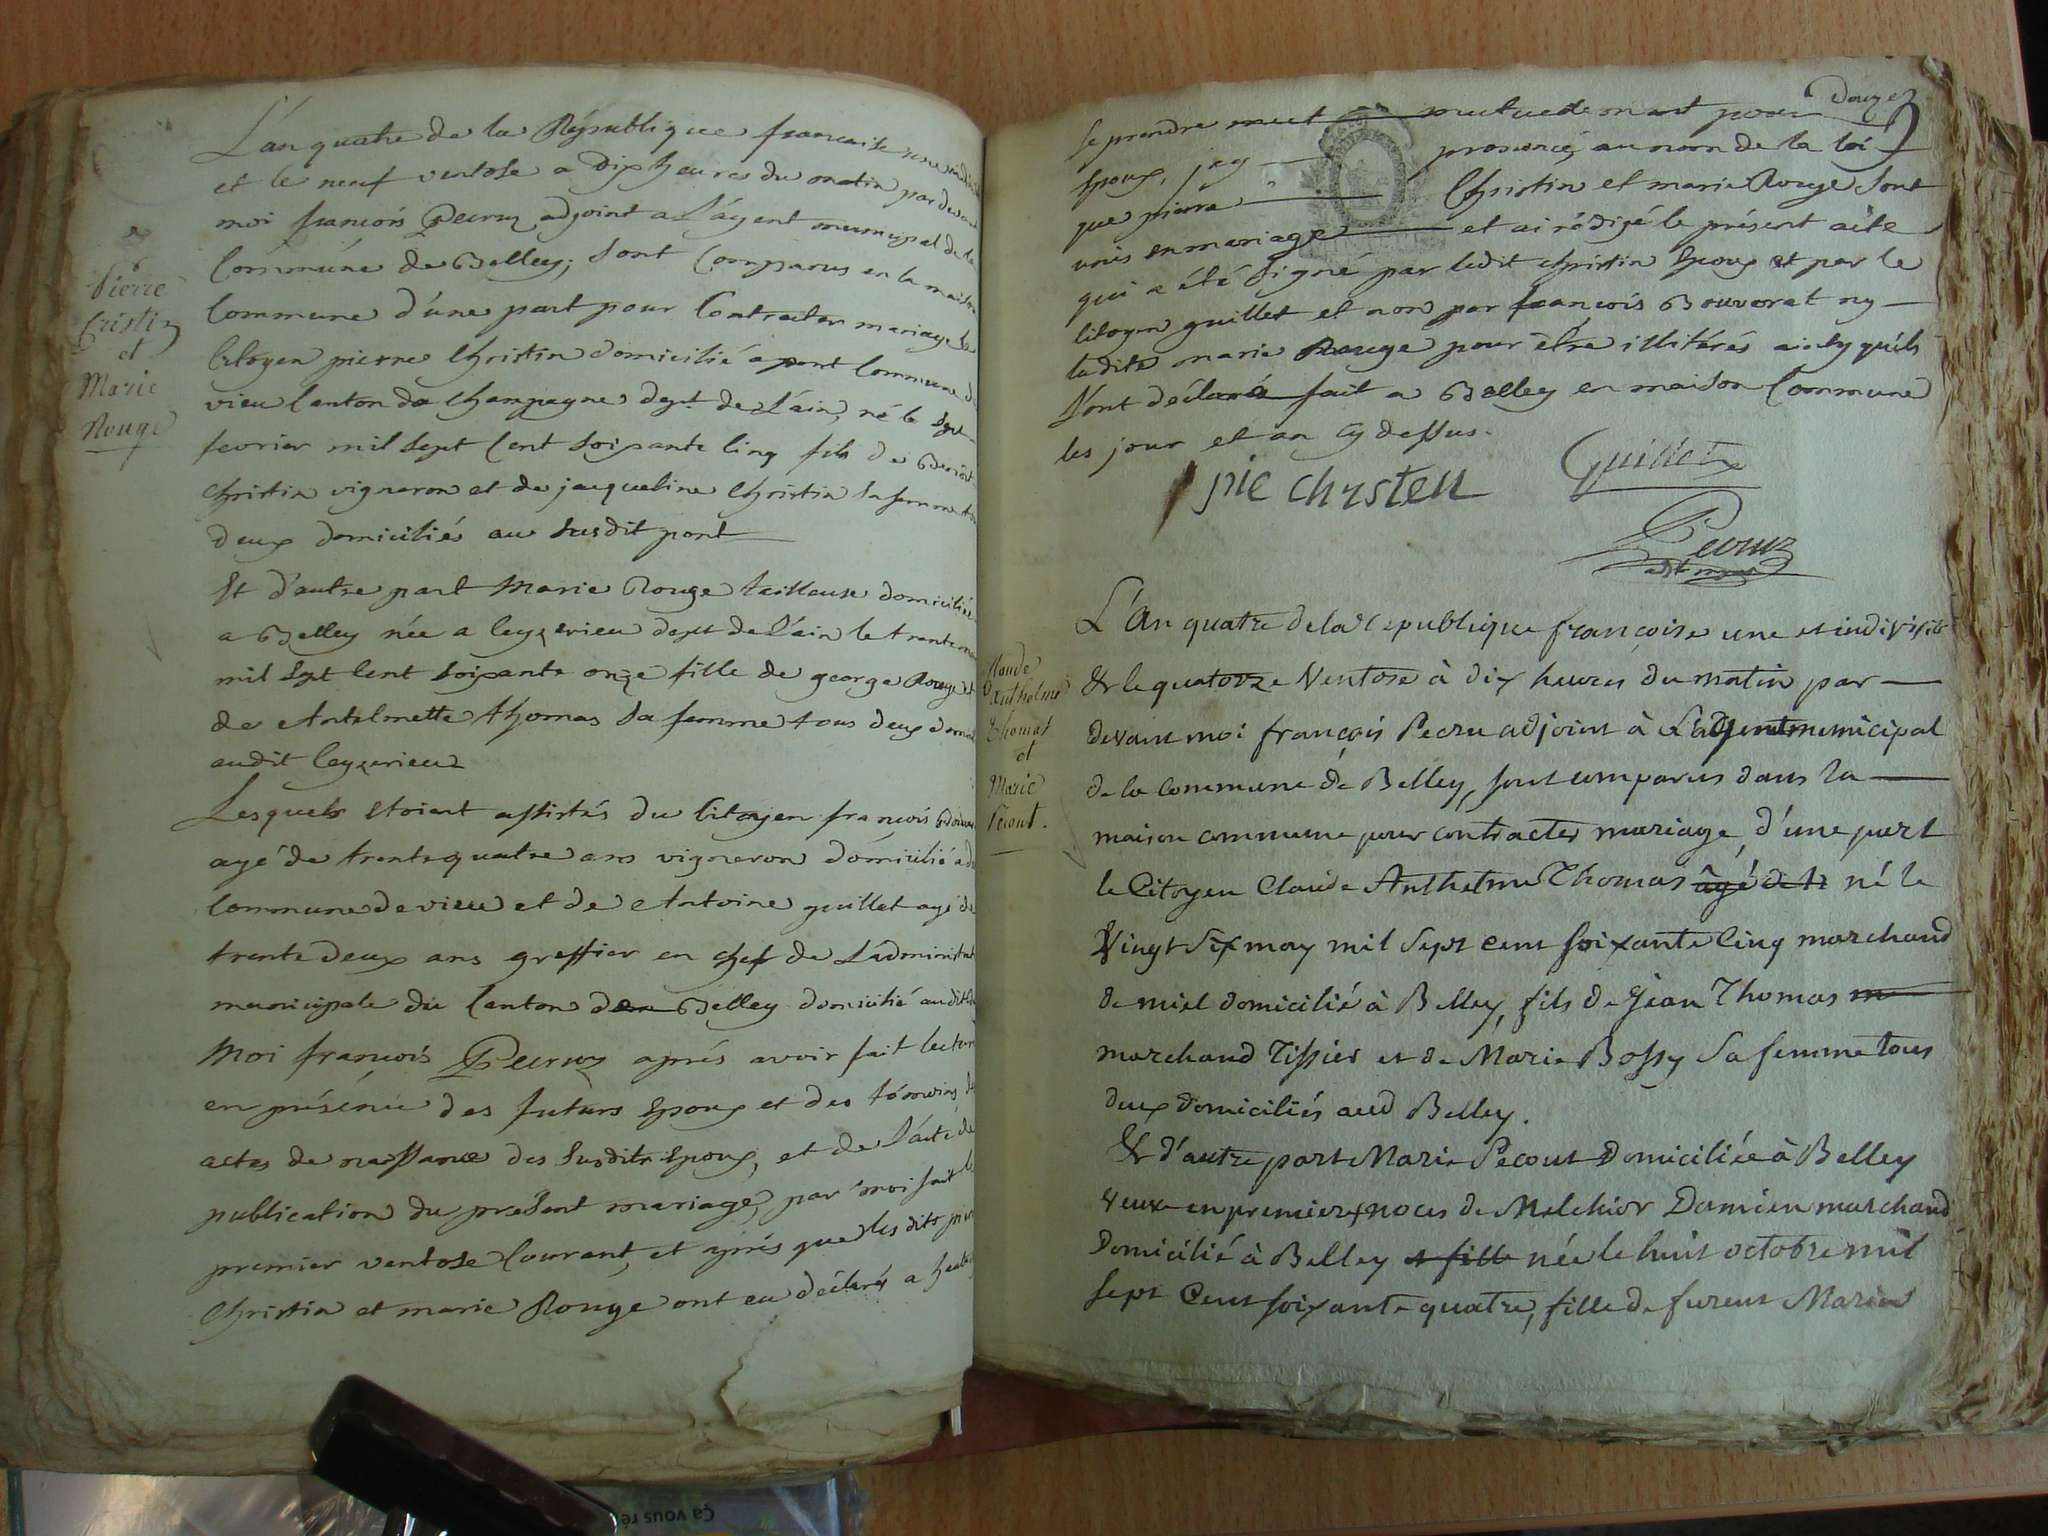 L'an quatre de la République française une
et le neuf ventose a dix heures du matin par devant
moi françois Pecruz adjoint a L'agent municipal de la
Commune de Belley, sont Comparus en la maison
Commune d'une part pour Contracter mariage le
Citoyen pierre Christin domicilié a pont Commune de
vieu Canton de Champagne dept. de L'ain, né le sept
fevrier mil sept Cent soixante Cinq fils de Benoit
Christin vigneron et de jacqueline Christin sa femme
deux domiciliés au susdit pont
Et d'autre part Marie Rouge tailleuse domiciliée
a Belley née a Ceyzerieu dept de L'ain le trente
mil sept Cent soixante onze fille de george Rouge et
de Antelmette thomas sa femme tous deux
audit Ceyzerieu
Lesquels étoient assistés du Citoyen françois
agé de trente quatre ans vigneron domicilié
Commune de vieu et de Antoine guillet agé de
trente deux ans greffier en chef de L'administrat
municipale du Canton de Belley domicilié audit
Moi françois Pecruz aprés avoir fait lecture
en présence des futurs Epoux et des témoins, des
actes de naissance des susdits Epoux, et de L'acte de
publication du présent mariage, par moi fait le
premier ventose Courant, et aprés que les dits pierre
Christin et marie Rouge ont eu déclaré a haute
Pierre
Cristin
et
Marie
Rouge
Douze
Se prendre muet mutuellement pour
Epoux, j'ay prononcé, au nom de la loi
que pierre Christin et marie Rouge sont
unis en mariage et ai rédigé le présent acte
qui a été signé par ledit christin Epoux et par le
Citoyen guillet et non par françois Bouvorat ny
ladite marie Rouge pour être illitérés ainsy qu'ils
L'ont déclaré fait a Belley en maison Commune
les jour et an cy dessus.
pie chrsten Guillet
Pecruz
L'An quatre de la Republique françoise une et indivisib
& le quatorze Ventose à dix heures du matin par
devant moi françois Pecru adjoint à L'agent municipal
de la commune de Belley, sont comparus dans la
maison commune pour contracter mariage, d'une part
le Citoyen Claude Anthelme Thomas âgé de né le
Vingt Six may mil sept cent soixante Cinq marchand
de miel domicilié à Belley, fils de Jean Thomas
marchand Tissier et de Marie Bossy sa femme tous
deux domiciliés aud Belley.
& d'autre part Marie Pecout domiciliée à Belley
veuve en premiere noces de Melchior Damien marchand
domicilié à Belley & fille née le huit octobre mil
sept Cent soixante quatre, fille de furent Marin
Claude
Anthelme
Thomas
et
Marie
Pecout.
Ça vous